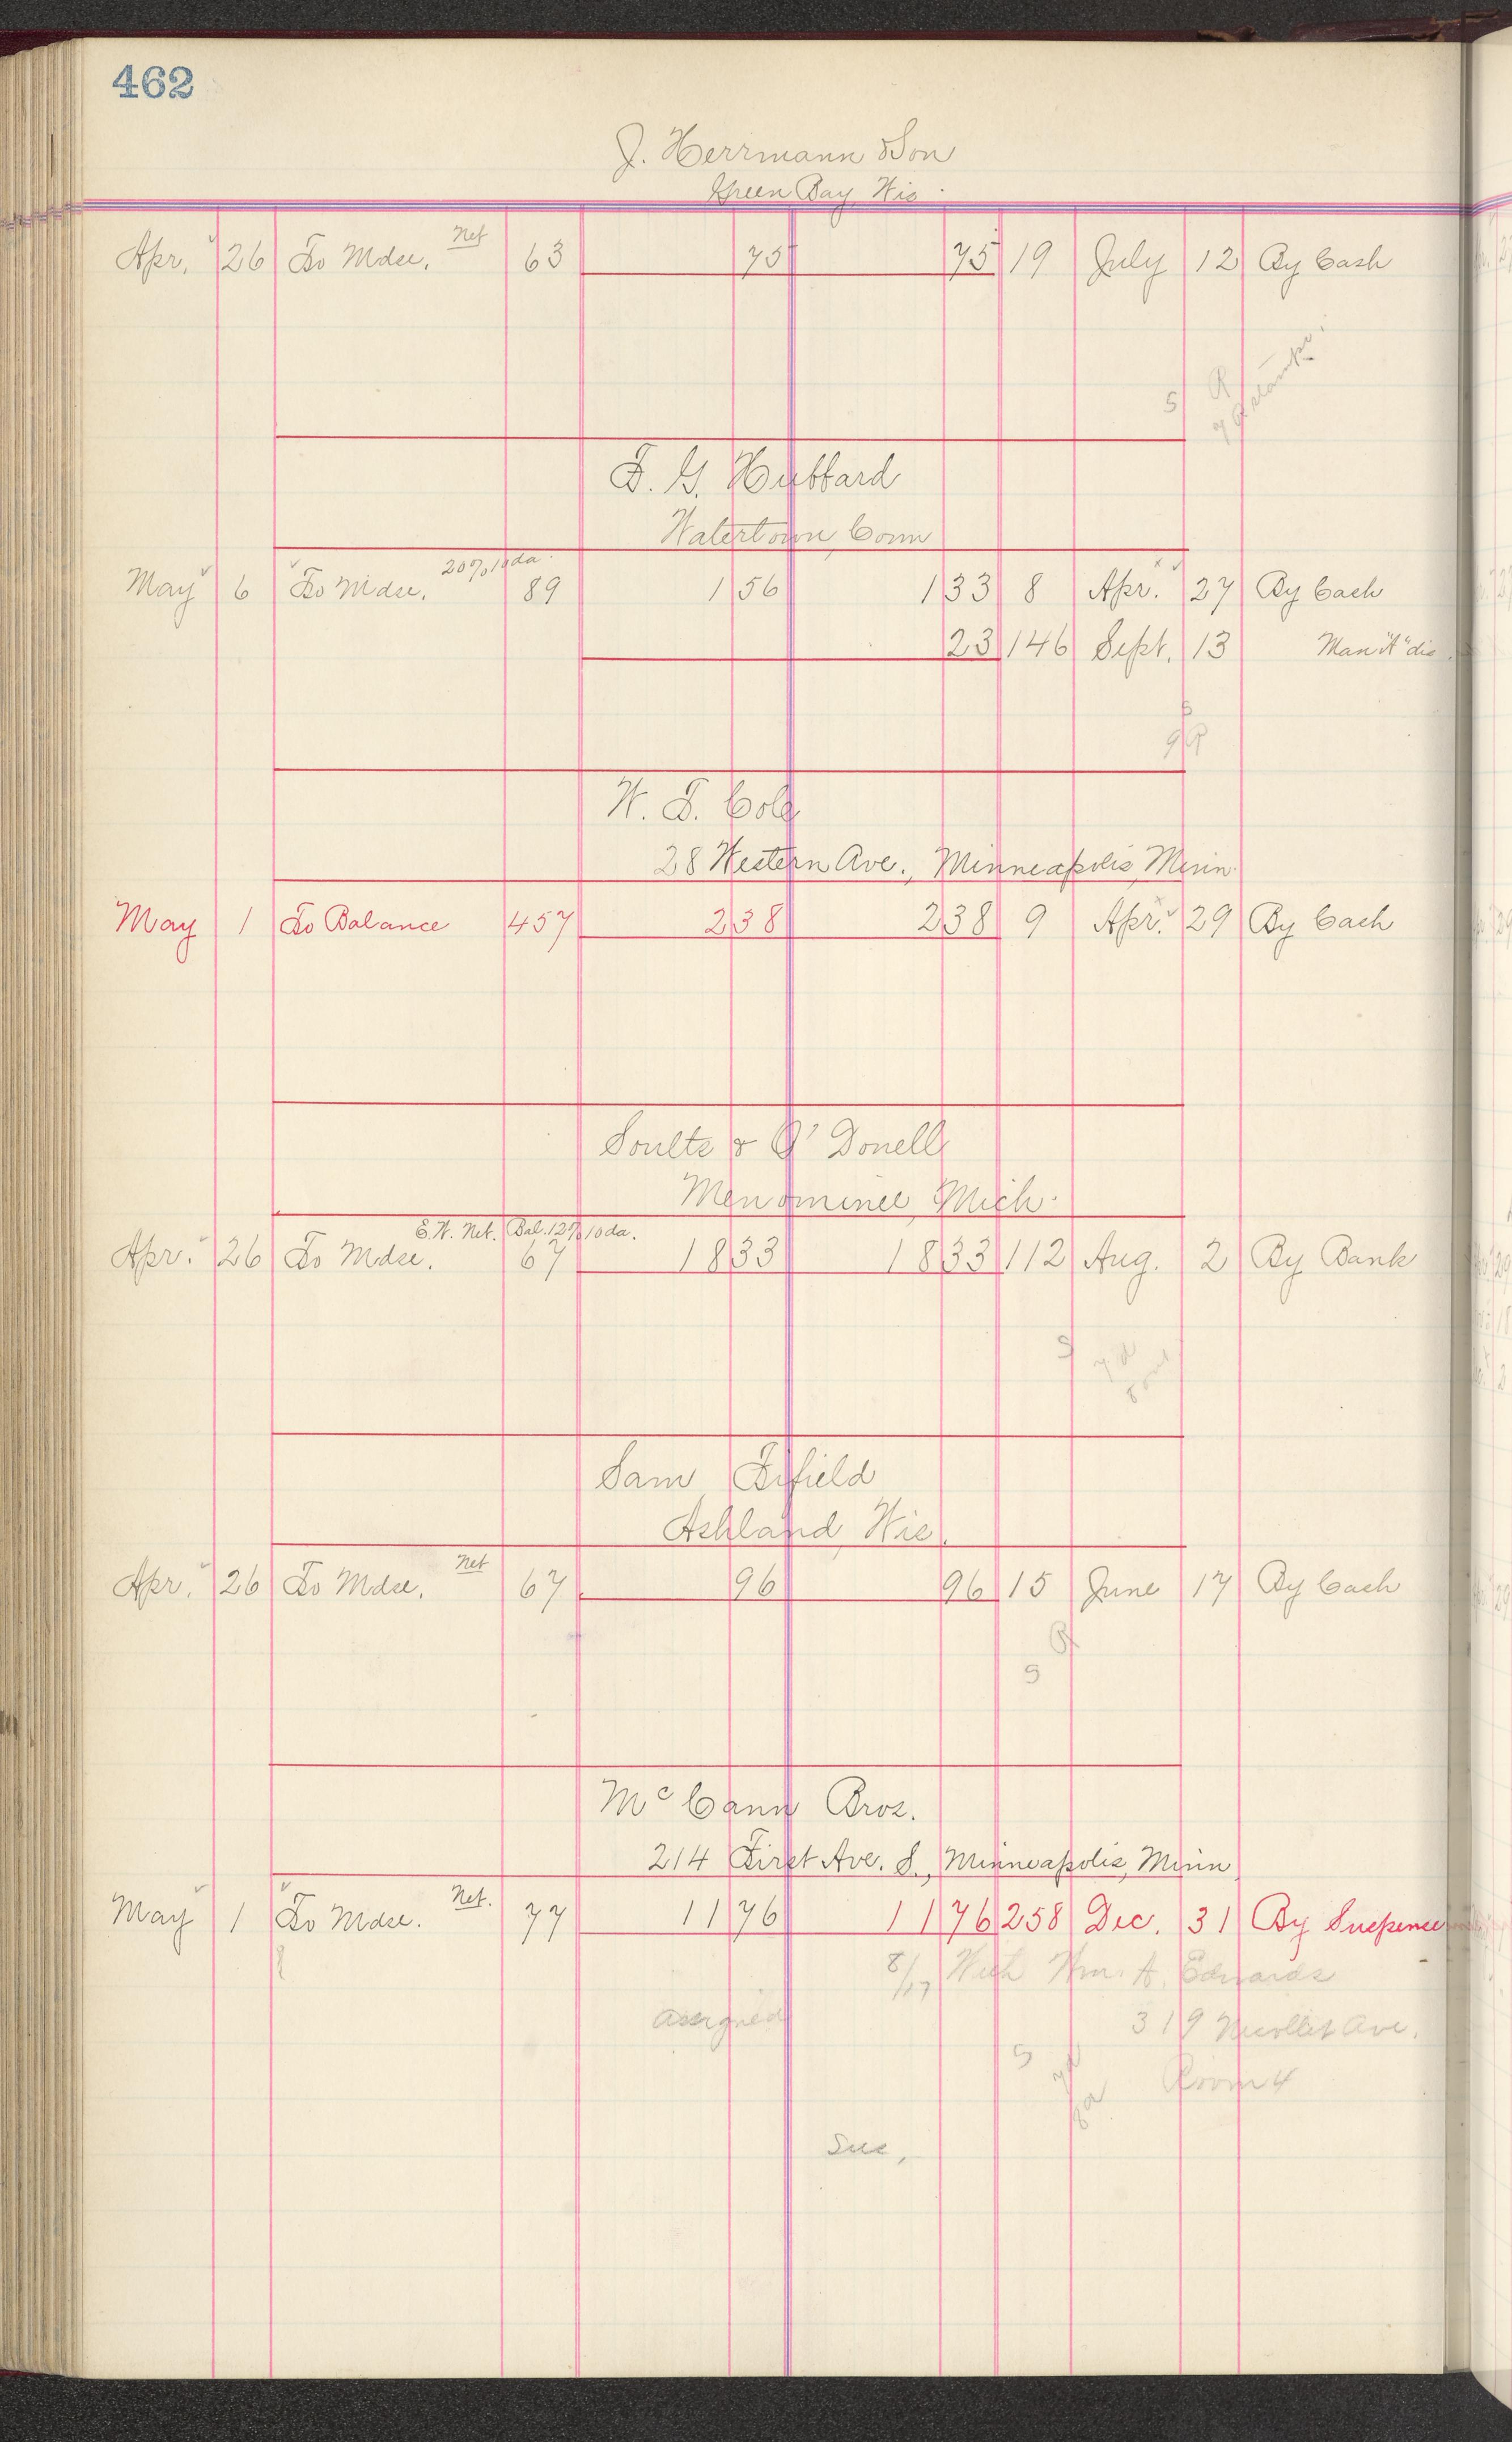 462
J. Herrmann & Son
Green Bay, Wis.
Apr. 26 To Mdse. Net 63 75 75 19 July 12 By Cash
S R
7 R stamps.
F. G. Hubbard
Watertown, Conn
May 6 To Mdse. 20% 10 da. 89 1 56 1 33 8 Apr. 27 By Cash
23 146 Sept. 13 Man "A" dis.
S
9 R
W. F. Cole
28 Western Ave., Minneapolis, Minn.
May 1 To Balance 457 2 38 2 38 9 Apr. 29 By Cash
Soults & O'Donell
Menominee, Mich.
Apr. 26 To Mdse. E.W. Net. Bal. 12% 10 da. 67 18 33 18 33 112 Aug. 2 By Bank
S
Sam Fifield
Ashland, Wis.
Apr. 26 To Mdse. Net 67 96 96 15 June 17 By Cash
R
S
McCann Bros.
214 First Ave. S., Minneapolis, Minn.
May 1 To Mdse. Net. 77 11 76 11 76 258 Dec. 31 By Suspense
8/17 With Wm. A. Edwards
assigned 319 Nicollet Ave.
S Room 4
Sus.